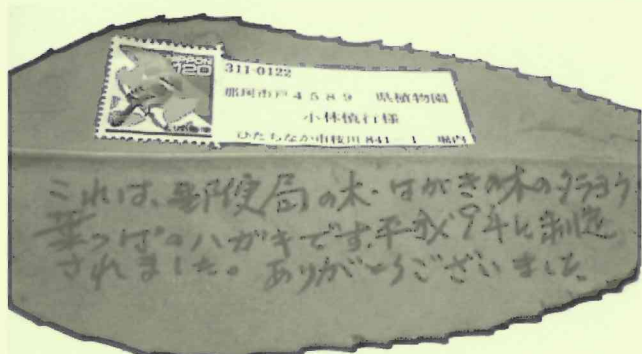 NIPPON
120
311-0122
那珂市戸4589 県植物園
小林慎行様
ひたちなか市枝川841-1 堀内
これは、郵便局の木・はがきの木のタラヨウ
葉っぱのハガキです。平成9年に制定
されました。ありがとうございました。